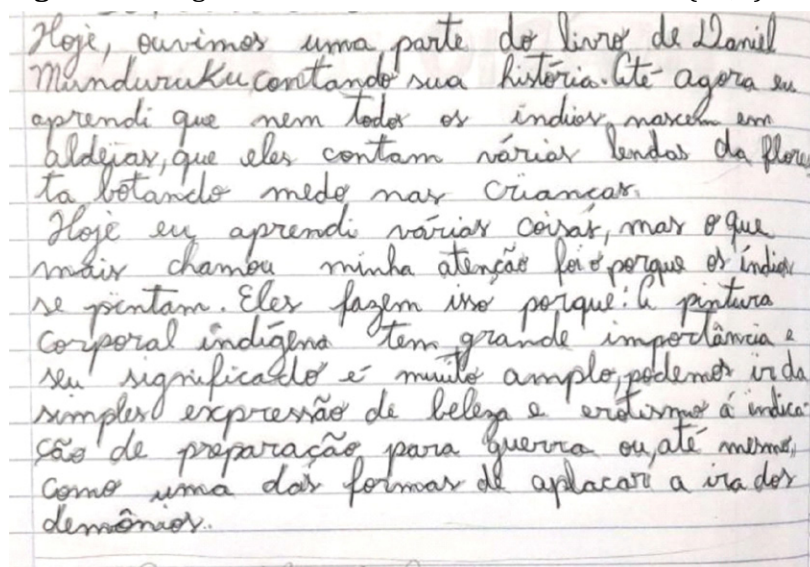 Hoje, ouvimos uma parte do livro de Daniel
Munduruku contando sua história. Até agora eu
aprendi que nem todos os índios nascem em
aldeias, que eles contam várias lendas da flores
ta botando medo nas crianças.
Hoje eu aprendi várias coisas, mas o que
mais chamou minha atenção foi o porque os índios
se pintam. Eles fazem isso porque: A pintura
corporal indígena tem grande importância e
seu significado é muito amplo, podemos ir da
simples expressão de beleza e erotismo á indica
ção de preparação para guerra ou, até mesmo,
como uma das formas de aplacar a ira dos
demônios.